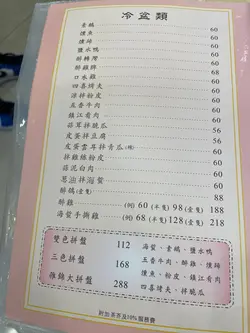 冷盆類
素鵝 60
燻魚 60
燻蹄 60
鹽水鴨 60
醉轉灣 60
醉雞脾 60
口水雞 60
四喜烤夫 60
涼拌粉皮 60
五香牛肉 60
鎮江肴肉 60
蒜茸拌脆瓜 56
皮蛋拌豆腐 56
皮蛋雲耳拌青瓜 60
拌雞絲粉皮 60
蒜泥白肉 60
葱油拌海蜇 68
醉鴿(隻) 88
醉雞 (例) 60 (半隻) 98 (壹隻) 188
海蜇手撕雞 (例) 68 (半隻) 128 (壹隻) 218
雙色拼盤 112
三色拼盤 168
雜錦大拼盤 288
海蜇、素鵝、鹽水鴨
五香牛肉、醉雞、燻蹄
燻魚、粉皮、鎮江肴肉
四喜烤夫、拌脆瓜
附加茶芥及10%服務費